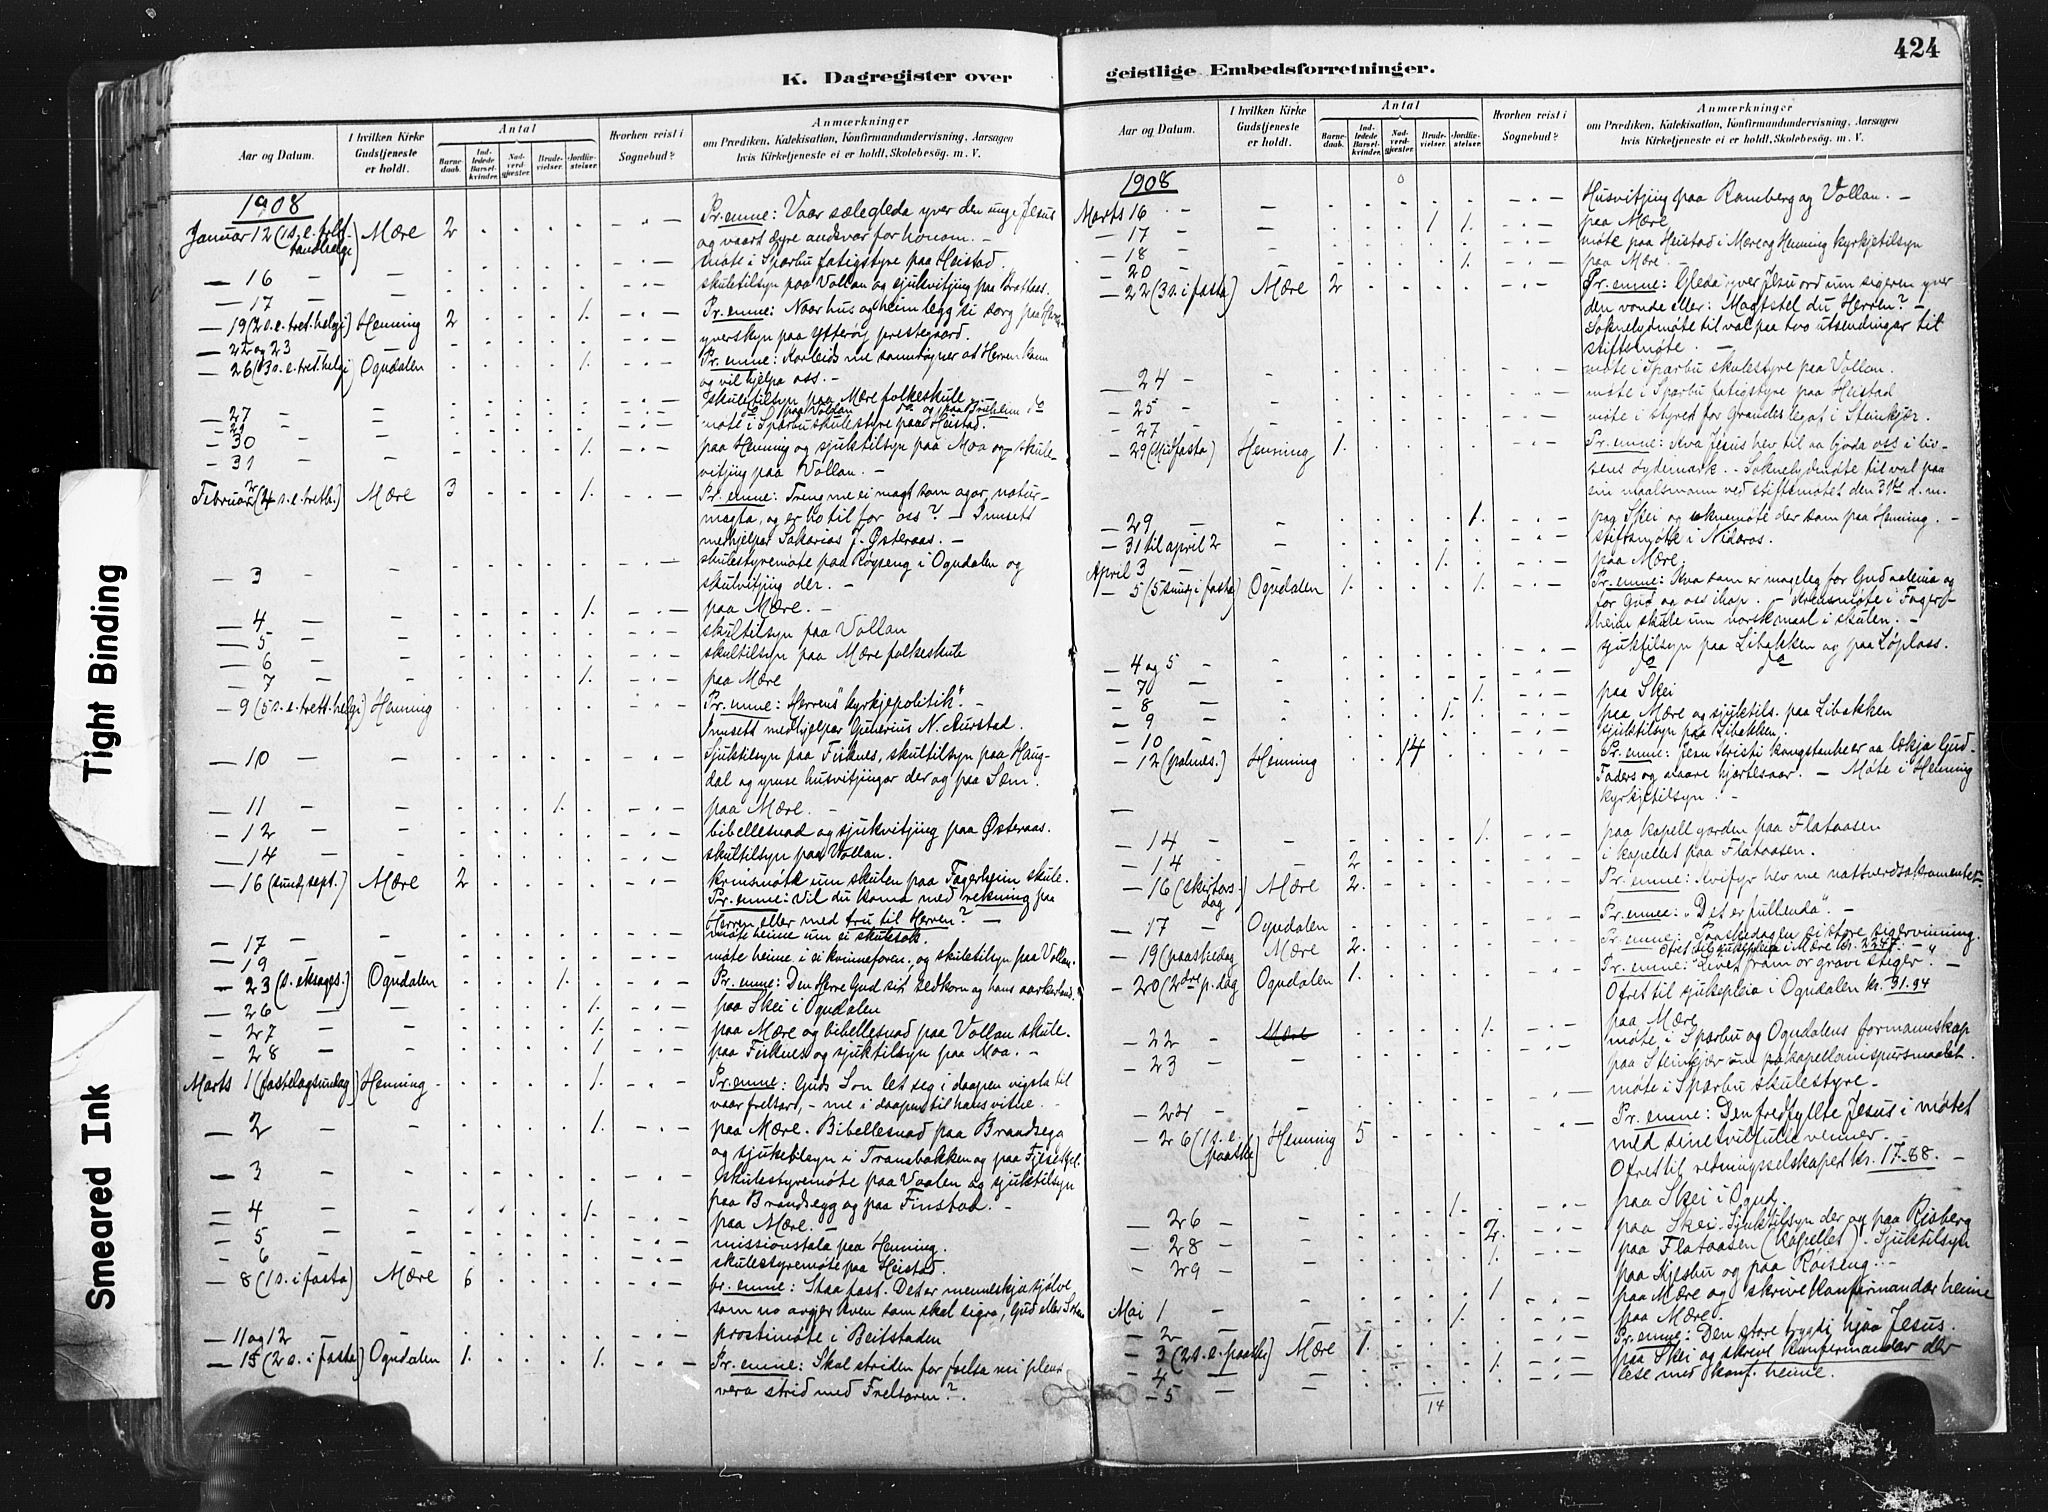 K. Dagregister over
Aar og Datum.
I hvilken Kirke Gudstjeneste er holdt.
Antal
Barne-daab.
Ind-ledede Barsel-kvinder.
Nad-verd-gjester.
Brude-vielser.
Jordfæ-stelser.
Hvorhen reist i Sognebud?
Anmærkninger
om Prædiken, Katekisation, Konfirmandundervisning, Aarsagen
hvis Kirketjeneste ei er holdt, Skolebesøg. m. V.
1908
Januar 12 (1 s. e. Mære 2 Pr. emne: Vaar sæleglede yver den unge Jesus
og vaart dyre andsvar for honom. -
— 16 møte i Sparbu fatigstyre paa Heistad.
— 17 skuletilsyn paa Vollan og sjukvitjing paa
— 19 (2 s. e. tret. helgi) Henning 2 1. Pr. emne: Naar hus og heim legg si sorg paa
— 22 og 23 yverskyn paa Ytterøy prestegaard.
— 26 (3 s. e. tret. helgi) Ogndalen 1. Pr. emne: at Herren kann
og vil hjelpa oss. -
— 27 skuletilsyn paa Mære folkeskule
— 29 do paa Vollan do og paa do
— 30 møte i Sparbu skulestyre paa Heistad.
— 31 1. paa Henning og sjuktilsyn paa Moa og skule-
vitjing paa Vollan. -
Februar 2 (4 s. e. tretth.) Mære 3 1. Pr. emne: Treng me ei magt som agar natur-
magta, og er ho til for oss? - Innsett
medhjelpar Sakarias J. Østeraas. -
— 3 skulestyremøte paa Røyseng i Ogndalen og
skulvitjing der. -
— 4 1. paa Mære. -
— 5 skultilsyn paa Vollan
— 6 skultilsyn paa Mære folkeskule
— 7 1. paa Mære
— 9 (5 s. e. trett. helgi) Henning Pr. emne: Herrens "kyrkjepolitik". -
Innsett medhjelpar N. Aurstad.
— 10 Sjuktilsyn paa Fisknes, skultilsyn paa Haug-
dal og ymse husvitjingar der og paa Sem.
— 11 1. paa Mære. -
— 12 bibellesnad og sjukvitjing paa Østeraas.
— 14 skultilsyn paa Vollan.
— 16 (sund. sept.) Mære 2 krinsmøte um skulen paa Fagerheim skule.
Pr. emne: Vil du koma med rekning paa
Herren eller med tru til Herren? -
— 17 møte heime um ei skulesak.
— 19 møte heime i ei kvinneforen. og skuletilsyn paa Vollan.
— 23 (s. seksages.) Ogndalen 1. Pr. emne: Den Herre Gud, sit sedkorn og hans aakerland.
— 26 1. paa Skei i Ogndalen
— 27 1. paa Mære og bibellesnad paa Vollan skule.
— 28 1. paa Fisknes og sjuktilsyn paa Moa. -
Marts 1 (fastelagsundag) Henning 1. Pr. emne: Guds Son let seg i daapen vigsla til
vaar frelsar, - me i daapen til hans vitne. -
— 2 1. paa Mære. Bibellesnad paa Brandsegg
og sjuketilsyn i Transbakken og paa
— 3 skulestyremøte paa Vaalen og sjuktilsyn
paa Brandsegg og paa Finstad. -
— 4 1. paa Mære. -
— 5 missionstala paa Henning.
— 6 skulestyremøte paa Heistad.
— 8 (1 s. i fasta) Mære 6 Pr. emne: Staa fast. Det er menneskja sjølve
som no avgjer kven som skal sigra, Gud eller Satan
— 11 og 12 prostimøte i Beitstaden
— 15 (2 s. i fasta) Ogndalen 1. 1. Pr. emne: Skal striden
vera strid med Frelsaren?
geistlige Embedsforretninger.
424
Aar og Datum.
I hvilken Kirke Gudstjeneste er holdt.
Antal
Barne-daab.
Ind-ledede Barsel-kvinder.
Nad-verd-gjester.
Brude-vielser.
Jordfæ-stelser.
Hvorhen reist i Sognebud?
Anmærkninger
om Prædiken, Katekisation, Konfirmandundervisning, Aarsagen
hvis Kirketjeneste ei er holdt, Skolebesøg. m. V.
1908
Marts 16 Husvitjing paa Ramberg og Vollan. -
— 17 1 1. paa Mære
— 18 møte paa Heistad i Mære og Henning kyrkjetilsyn
— 20 1. paa Mære. -
— 22 (3 s. i fasta) Mære 2 Pr. emne: Gleda yver Jesu ord um sigeren yver
den vonde eller: Magtstel du Herren? -
Soknelydmøte til val paa tvo utsendingar til
stiftsmøte. -
— 24 møte i Sparbu skulestyre paa Vollan.
— 25 møte i Sparbu fatigstyre paa Heistad
— 27 møte i styret for Grandes legat i Steinkjær.
— 29 (Midfasta) Henning 1. Pr. emne: Kva Jesus hev til aa bjoda oss i liv-
sens øydemark. - Soknelydmøte til val paa
ein maalsmann ved stiftsmøtet den 31te d. m.
— 29 1. paa Skei og soknemøte der som paa Henning. -
— 31 til april 2 stiftsmøte i Nidaros.
April 3 1. paa Mære.
— 5 (5 sund. i fasta) Ogndalen 1. 1. Pr. emne: Kva som er mogeleg for Gud aaleina og
for Gud og oss ihop. - Krinsmøte i Fager-
heim skule um norskmaal i skulen. -
— 4 og 5 sjuktilsyn paa Libakken og paa Løplass.
— 7 do do
— 8 1. paa Skei
— 9 1. paa Mære og sjuktils. paa Libakken
— 10 sjuktilsyn paa Libakken.
— 12 (palmes.) Henning 14 Pr. emne: Jesu Kristi kongstanke er aa lækja Gud-
Faders og vaare hjartesaar. - Møte i Henning
kyrkjetilsyn. -
— 14 1. paa kapellgarden paa Flataasen
— 14 2 i kapellet paa Flataasen.
— 16 (skirtors-dag) Mære 2. Pr. emne: Kvifyr hev me nattverdsakramentet
— 17 Ogndalen Pr. emne: "Det er fullenda". -
— 19 (paaskedag Mære 2. Pr. emne: Paaskedagen ei store sigervinning.
Ofret til sjukepleia i Mære kr. 22.47. -
— 20 (2dre p. dag Ogndalen 1. Pr. emne: "Livet fram or gravi stiger". -
Ofret til sjukepleia i Ogndalen kr. 31.94
— 22 Mære 1. paa Mære
— 23 møte i Sparbu og Ogndalens formannskap
paa Steinkjer um
— 24 møte i Sparbu skulestyre. -
— 26 (1 s. e. paaske) Henning 5 Pr. emne: Den fredfyllte Jesus i møtet
med sine venner. -
Ofret til redningsselskapet kr. 17-88. -
— 26 1. paa Skei i Ognd.
— 28 2. paa Skei. Sjuktilsyn der og paa Risberg
— 29 1. paa Flataasen (kapellet). Sjuktilsyn
paa Kjesbu og paa Røiseng. -
Mai 1 1 paa Mære og skrive konfirmandar heime
— 2 1. paa Mære.
— 3 (2 s. e. paaske) Mære 1. Pr. emne: Den store trygd hjaa Jesus.
— 4 1. paa Skei og skrive konfirmandar der
— 5 lese med konf. heime.
14
Tight Binding
Smeared Ink